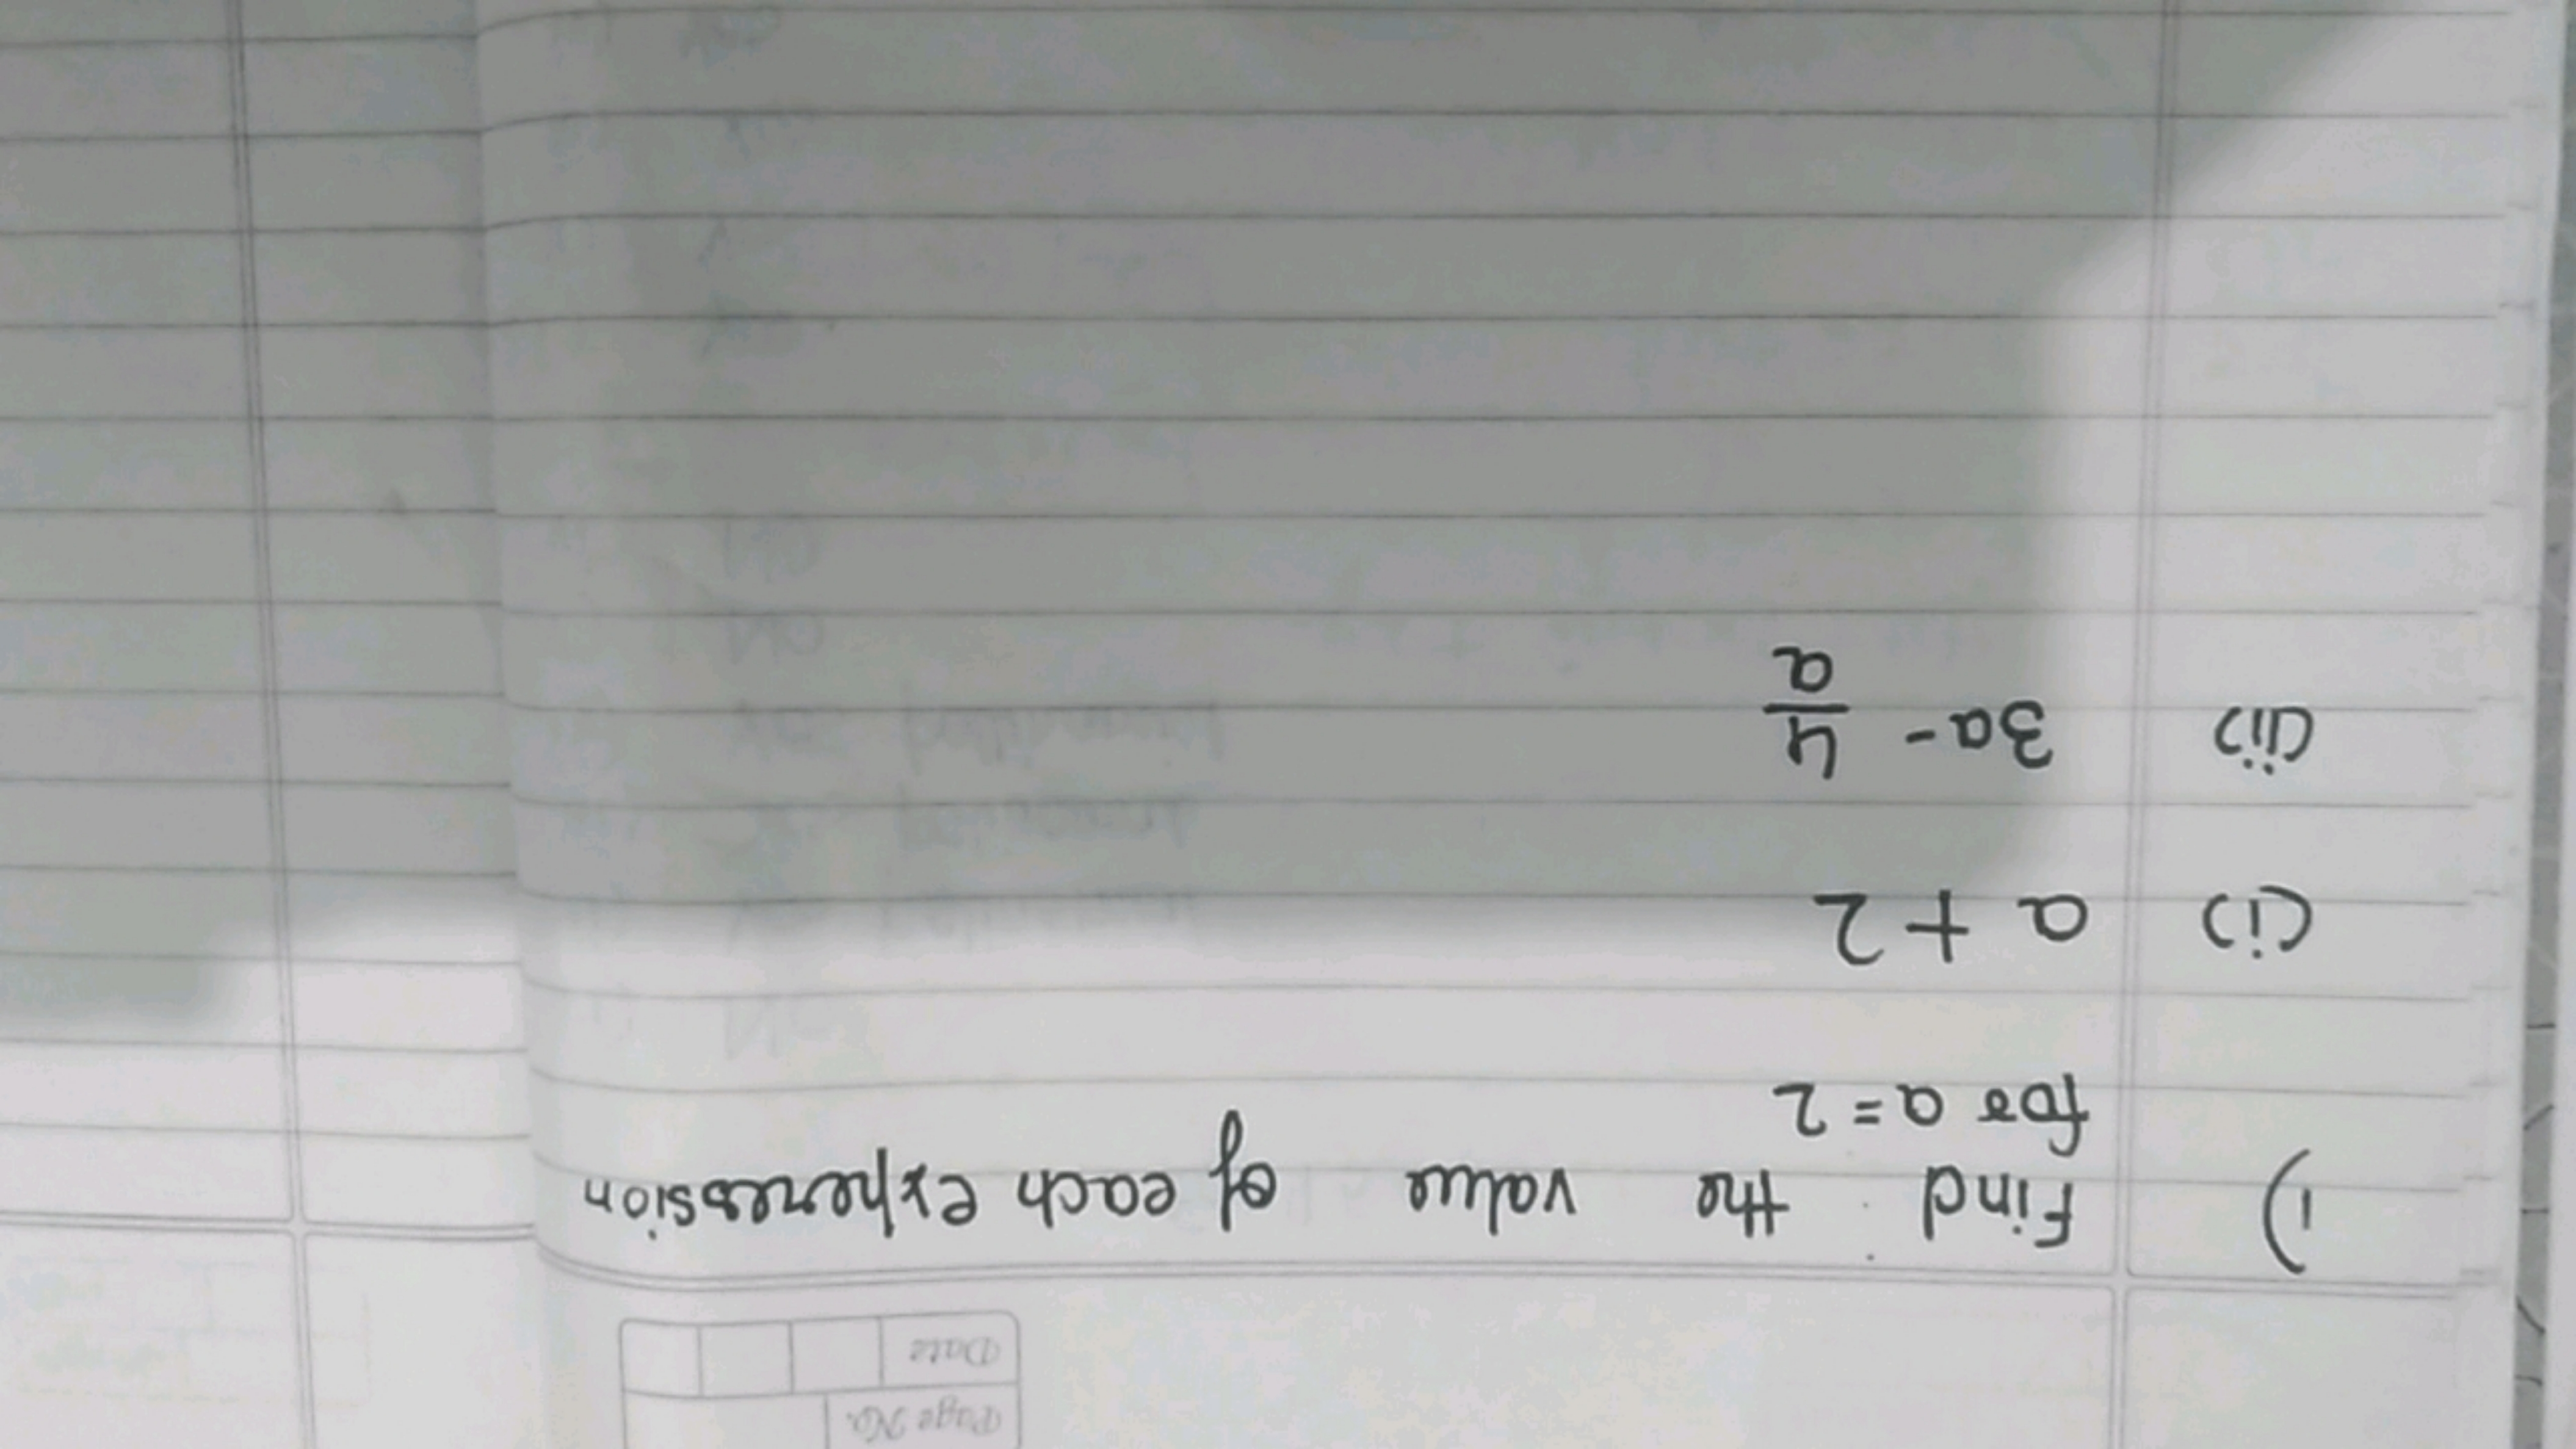 Page No.
Date
1) Find the value of each experession
for a = 2
(i) a + 2
(ii) 3a - 4/a